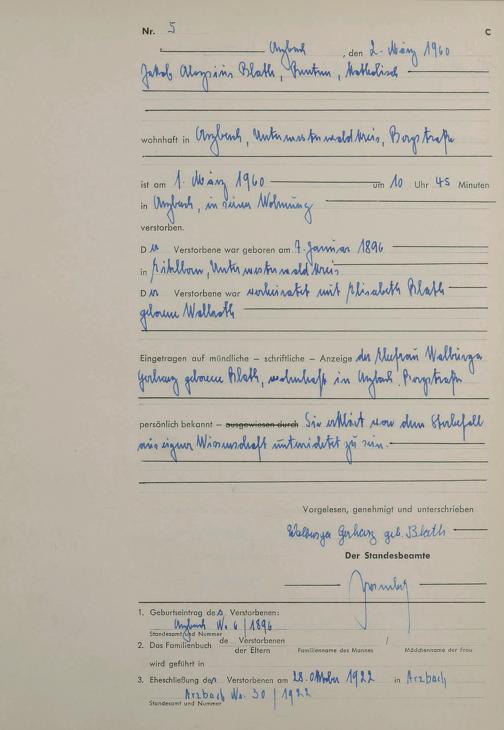 Nr. 5
C
Arzbach, den 2. März 1960
Jakob Aloysius Blath, Rentner, katholisch
wohnhaft in Arzbach, Unterwesterwaldkreis, Borgstraße
ist am 1. März 1960 um 10 Uhr 45 Minuten
in Arzbach, in seiner Wohnung
verstorben.
Der Verstorbene war geboren am 7. Januar 1896
in Kadenbach, Unterwesterwaldkreis
Der Verstorbene war verheiratet mit Elisabeth Blath
geborene
Eingetragen auf mündliche – schriftliche – Anzeige der Ehefrau Walburga
Gerharz geborene Blath, wohnhaft in Arzbach, Borgstraße
persönlich bekannt – ausgewiesen durch Sie erklärt von dem Sterbefall
aus eigner Wissenschaft unterrichtet zu sein.
Vorgelesen, genehmigt und unterschrieben
Walburga Gerharz geb. Blath
Der Standesbeamte
1. Geburtseintrag des Verstorbenen:
Arzbach No. 6 / 1896
Standesamt und Nummer
2. Das Familienbuch de Verstorbenen /
der Eltern Familienname des Mannes Mädchenname der Frau
wird geführt in
3. Eheschließung des Verstorbenen am 28. Oktober 1922 in Arzbach
Arzbach No. 30 / 1922
Standesamt und Nummer